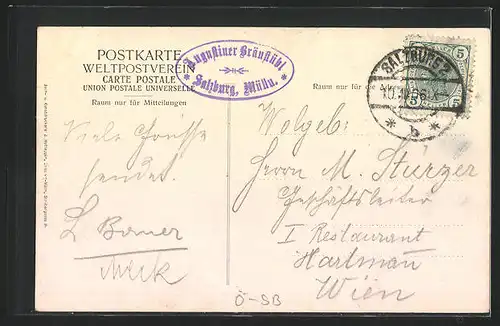 POSTKARTE
WELTPOSTVEREIN
CARTE POSTALE
UNION POSTALE UNIVERSELLE
Raum nur für Mitteilungen
Augustiner Bräustübl
Salzburg, Mülln.
Raum nur für die
SALZBURG 2
5
5
* b *
Viele Grüsse
sendet
L Bauer
Wolgeb:
Herrn M. Sturzer
Geschäftsleiter
I Restaurant
Hartman
Wien
Ö-SB